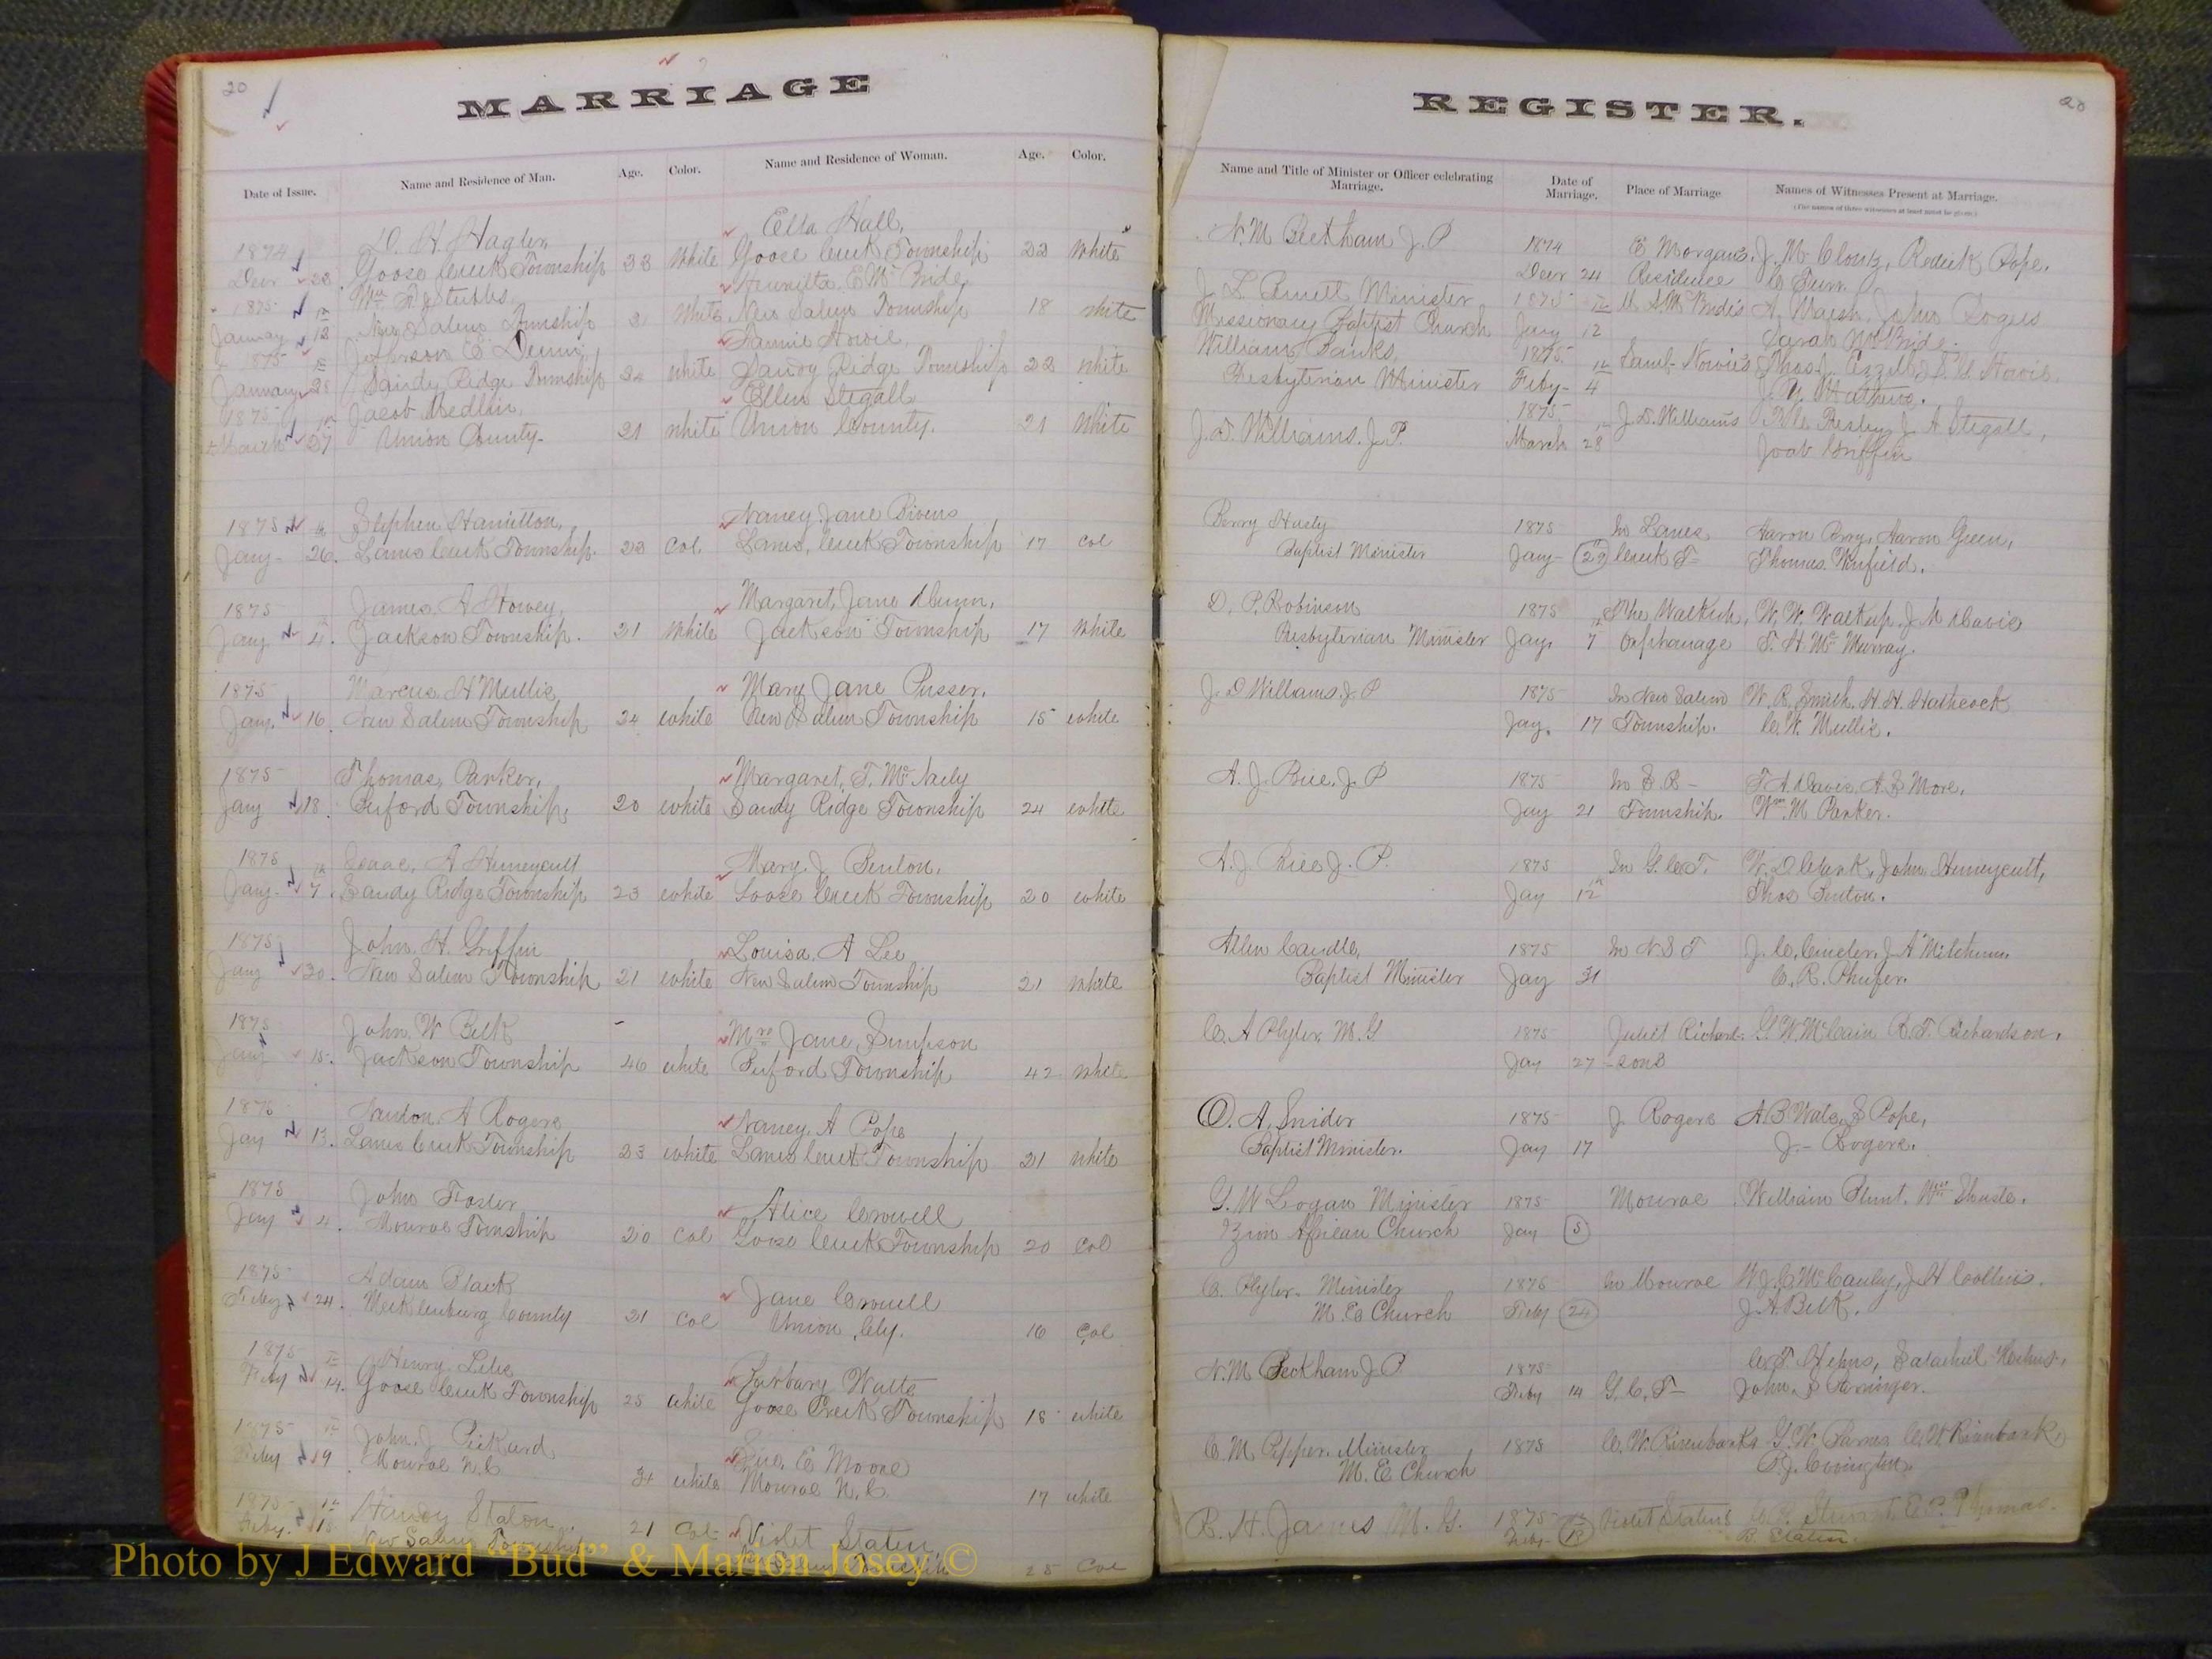 20
MARRIAGE
Date of Issue. Name and Residence of Man. Age. Color. Name and Residence of Woman. Age. Color.
1874 D. H. Hagler, Ella Hall,
Decr 23 Goose Creek Township 23 White Goose Creek Township 22 White
1875 Wm A. Stubbs, Henrietta E. McBride,
January 12 New Salem Township 21 White New Salem Township 18 white
1875 Jefferson E Fannie Howie,
January 28 Sandy Ridge Township white Sandy Ridge Township 22 white
1875 Jacob Medlin, Ellen Stegall
March 27 Union County 21 white Union County. 21 White
1875 Stephen Hamilton, Nancy Jane Bivens
Jany- 26. Lanes Creek Township. 23 Col. Lanes, Creek Township 17 col
1875 James A Howey, Margaret, Jane
Jany 4. Jackson Township. 21 White Jackson Township 17 White
1875 Marcus H Mullis, Mary Jane Pusser,
Jany. 16. New Salem Township 24 white New Salem Township 15 white
1875 Thomas, Parker, Margaret, T. McNeely
Jany 18. Buford Township, 20 white Sandy Ridge Township 24 white
1875 Isaac, A Huneycutt Mary J Benton,
Jany- 7. Sandy Ridge Township 23 white Goose Creek Township 20 white
1875 John. H. Griffin Louisa. A Lee
Jany 30. New Salem Township 21 white New Salem Township 21 White
1875 John. W Belk Mrs Jane Simpson
Jany 15. Jackson Township 46 white Buford Township 42 White
1875 A Rogers Nancy. A Pope
Jany 13. Lanes Creek Township 23 white Lanes Creek Township 21 White
1875 John Foster Alice Crowell
Jany 4. Monroe Township 20 Col Goose Creek Township 20 Col
1875 Adam Black Jane Crowell
Feby 24. Mecklenburg County 21 Col Union Cty. 16 Col
1875 Henry Barbary Watts
Feby 14. Goose Creek Township 25 white Goose Creek Township 18 white
1875 John. J Pickard Sue. E Moore
Feby 19 Monroe N.C 31 white Monroe N.C. 17 white
1875 Handy Staton Violet Staten,
Feby. 18 New Salem Township 21 Col 25 Col
20
REGISTER.
Name and Title of Minister or Officer celebrating Marriage. Date of Marriage. Place of Marriage Names of Witnesses Present at Marriage.
(The names of three witnesses at least must be given.)
N. M Beckham J. P 1874 E Morgan's, J. M. Clontz, Redick Pope,
Decr 24 Residence C Furr.
Minister 1875 A
Missionary Baptist Church Jany 12 Sarah McBride.
William Banks, 1875 Saml- Howie's
Presbyterian Minister Feby- 4
J. D. Williams. J. P. 1875 J. D. Williams J. A Stegall,
March 28 Joab Griffin
Berry 1875 In Lanes Aaron Berry, Aaron Green,
Baptist Minister Jany- 29 Creek T- Thomas Winfield.
D. P. Robinson 1875 The Walkup, W. W. Walkup, J. M Davis
Presbyterian Minister Jany. 7 Orphanage T. H. McMurray.
J. D Williams. J. P 1875 In New Salem W. R. Smith. H. H. Hathcock
Jany. 17 Township. C. W. Mullis.
A. J. Price. J. P 1875 In S. R- T. A. Davis, A. S More.
Jany 21 Township. Wm. M Parker.
A. J. Price J. P. 1875 In G. C. T. W. D Clark, John Huneycutt,
Jany 12 Thos Benton.
Allen Caudle, 1875 In N. S T J. A Mitchum.
Baptist Minister Jany 31 C. R. Phifer.
C. A Plyler. M. G 1875 Juliet Richard- G. W. McCain R. T. Richardson.
Jany 27 -sons
O. A. Snider 1875 J. Rogers A. B Wate, S Pope,
Baptist Minister. Jany 17 J.- Rogers.
G. W Logan Minister 1875 Monroe William Blunt, Wm
Zion African Church Jany 5
C. Plyler. Minister 1875 In Monroe W. J. C. McCauley, J. H Collins.
M. E Church Feby 24 J. A Belk.
N. M. Beckham J. P. 1875 C. T. Helms,
Feby 14 G. C. T- John S
C. M. Pepper. Minister 1875 C. W. Risenbarks G. W.
M. E Church
R. H. James M. G. 1875 Violet Statens Thomas.
Feby 18 B. Staten.
Photo by J Edward "Bud" & Marion Josey ©